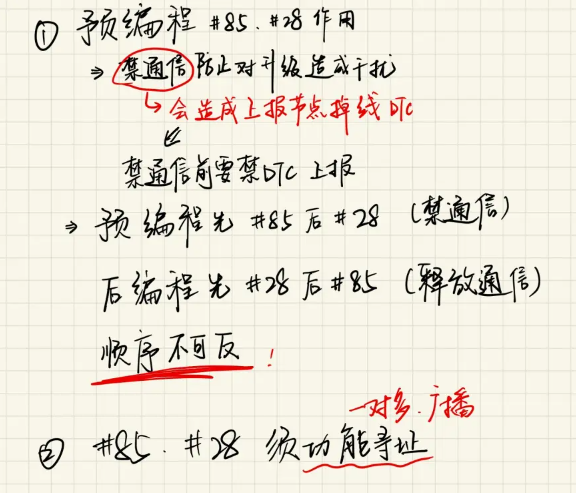 ① 预编程 #85. #28 作用
⇒ 禁通信 防止对升级造成干扰
↳ 会造成上报节点掉线DTC
⇙
禁通信前要禁DTC 上报
⇒ 预编程先 #85 后 #28 (禁通信)
后编程先 #28 后 #85 (释放通信)
顺序不可反 !
一对多. 广播
② #85. #28 须功能寻址